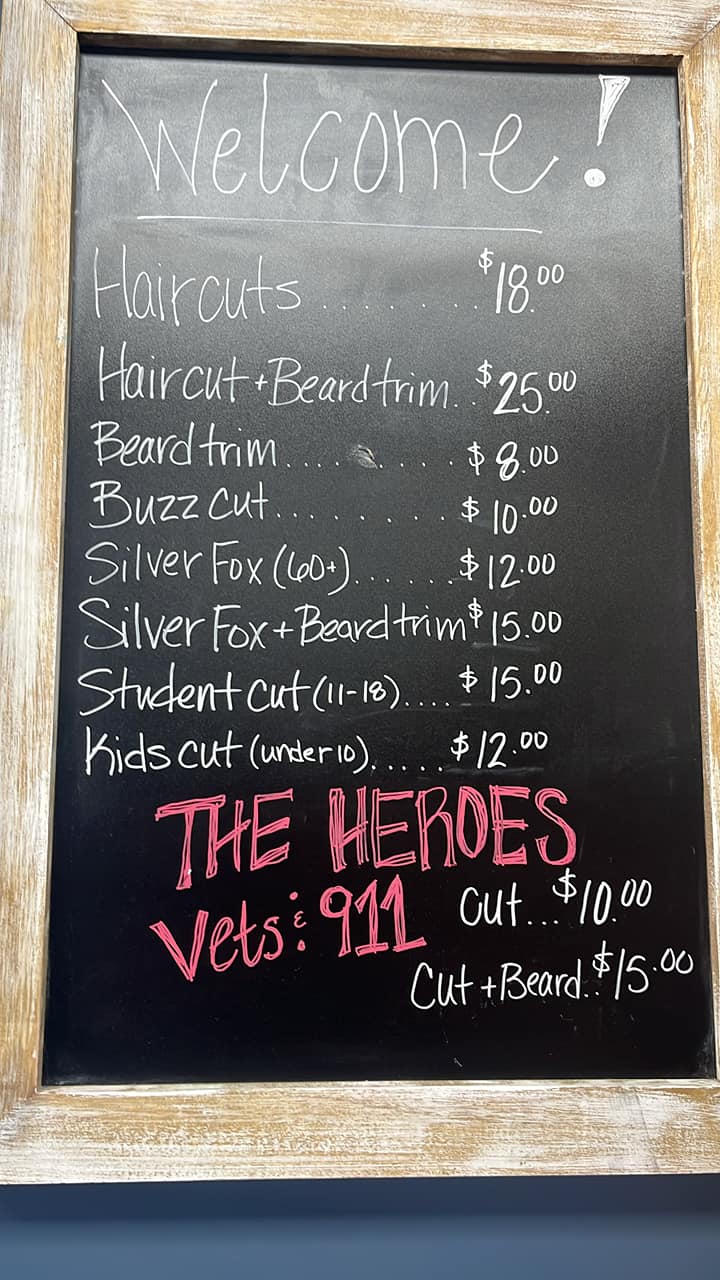 Welcome!
Haircuts ........ $18.00
Haircut + Beard trim.. $25.00
Beard trim......... $8.00
Buzz cut......... $10.00
Silver Fox (60+)...... $12.00
Silver Fox + Beard trim $15.00
Student cut (11-18).... $15.00
Kids cut (under 10)..... $12.00
THE HEROES
Vets & 911 Cut...$10.00
Cut + Beard..$15.00